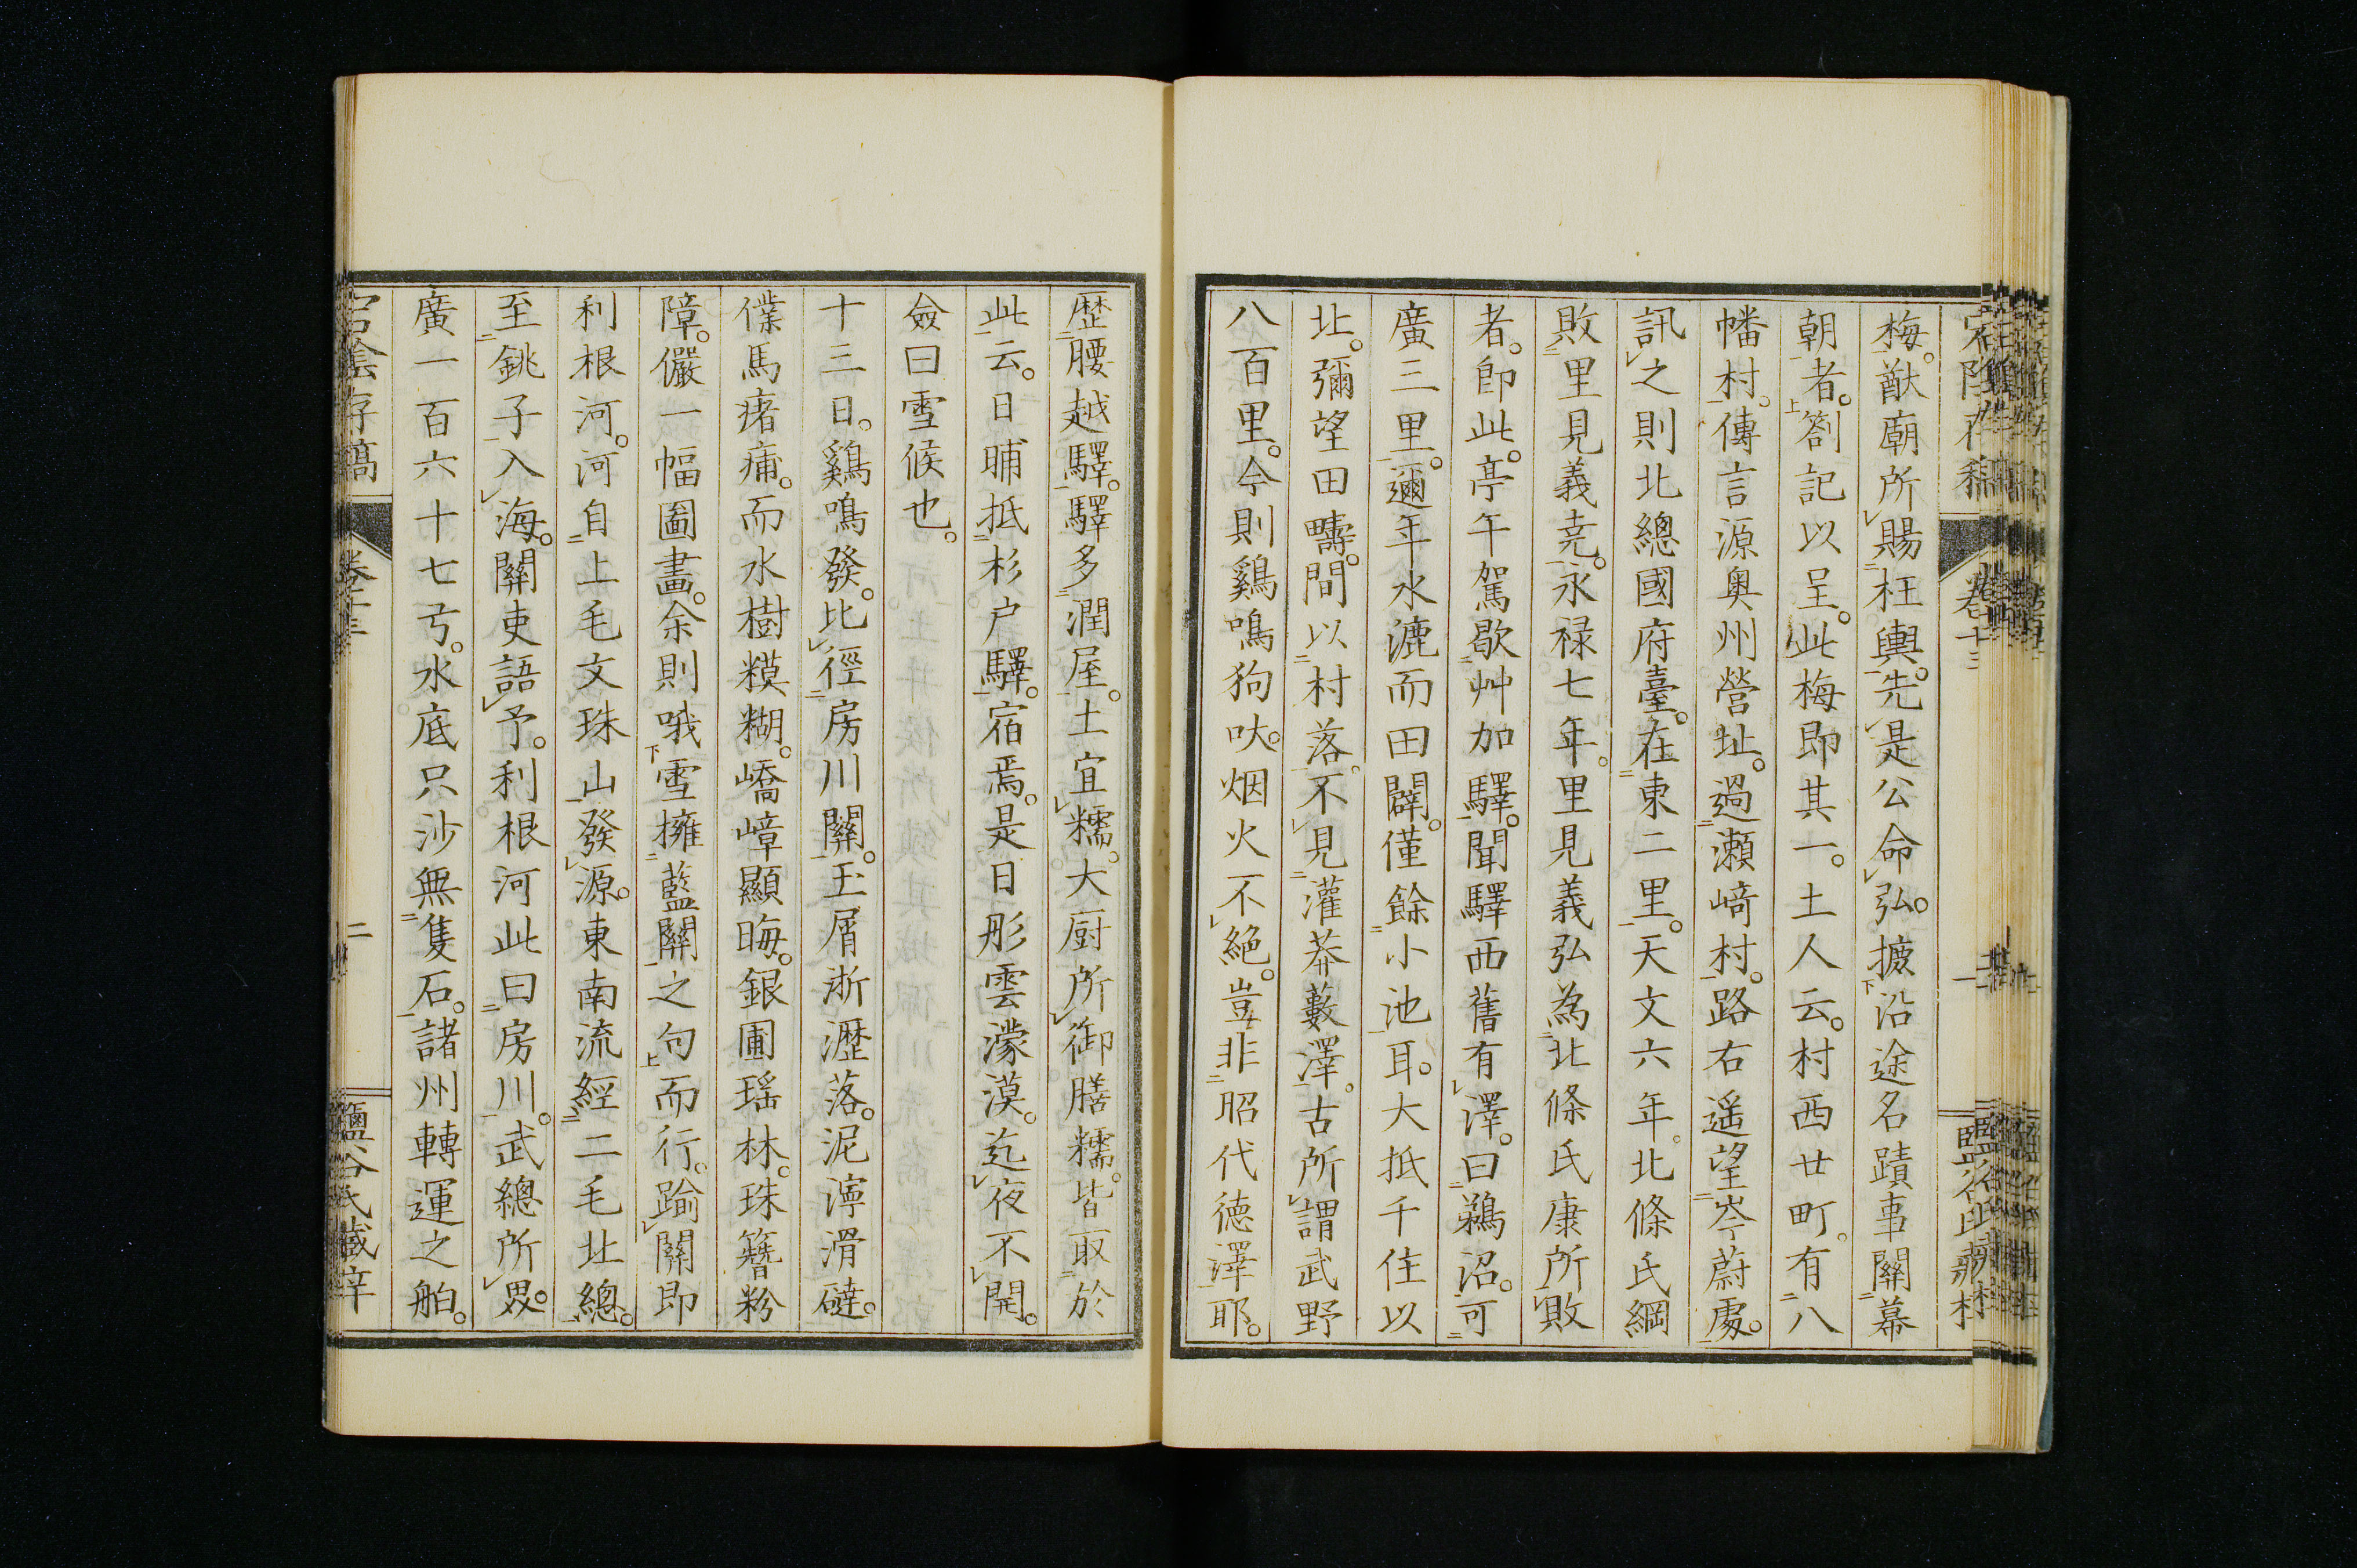 梅。猷廟所賜枉輿。先是公命弘。摭沿途名蹟事關幕
朝者。劄記以呈。此梅即其一。土人云。村西廿町。有八
幡村。傳言源奥州營址。過瀬﨑村。路右遥望岑蔚處。
訊之則北總國府臺。在東二里。天文六年。北條氏綱
敗里見義尭。永禄七年。里見義弘為北條氏康所敗
者。即此。亭午駕歇艸加驛。聞驛西舊有澤。曰鵜沼。可
廣三里。邇年水漉而田闢。僅餘小池耳。大抵千住以
北。彌望田疇。間以村落。不見灌莽藪澤。古所謂武野
八百里。今則鷄鳴狗吠。烟火不絶。豈非昭代德澤耶。
歴腰越驛。驛多潤屋。土宜糯。大厨所御膳糯。皆取於
此云。日晡抵杉戸驛。宿焉。是日彤雲濛漠。迄夜不開。
僉曰雪候也。
十三日。鷄鳴發。比徑房川關。玉屑淅瀝落。泥濘滑䃮。
僕馬瘏痡。而水樹糢糊。嶠嶂顯晦。銀圃瑶林。珠簪粉
障。儼一幅圖畫。余則哦雪擁藍關之句而行。踰關即
利根河。河自上毛文珠山發源。東南流經二毛北總。
至銚子入海。關吏語予。利根河此曰房川。武總所界。
廣一百六十七丂。水底只沙無隻石。諸州轉運之舶。
卷十三
一
宕陰存稿
卷十三
二
鹽谷氏藏梓